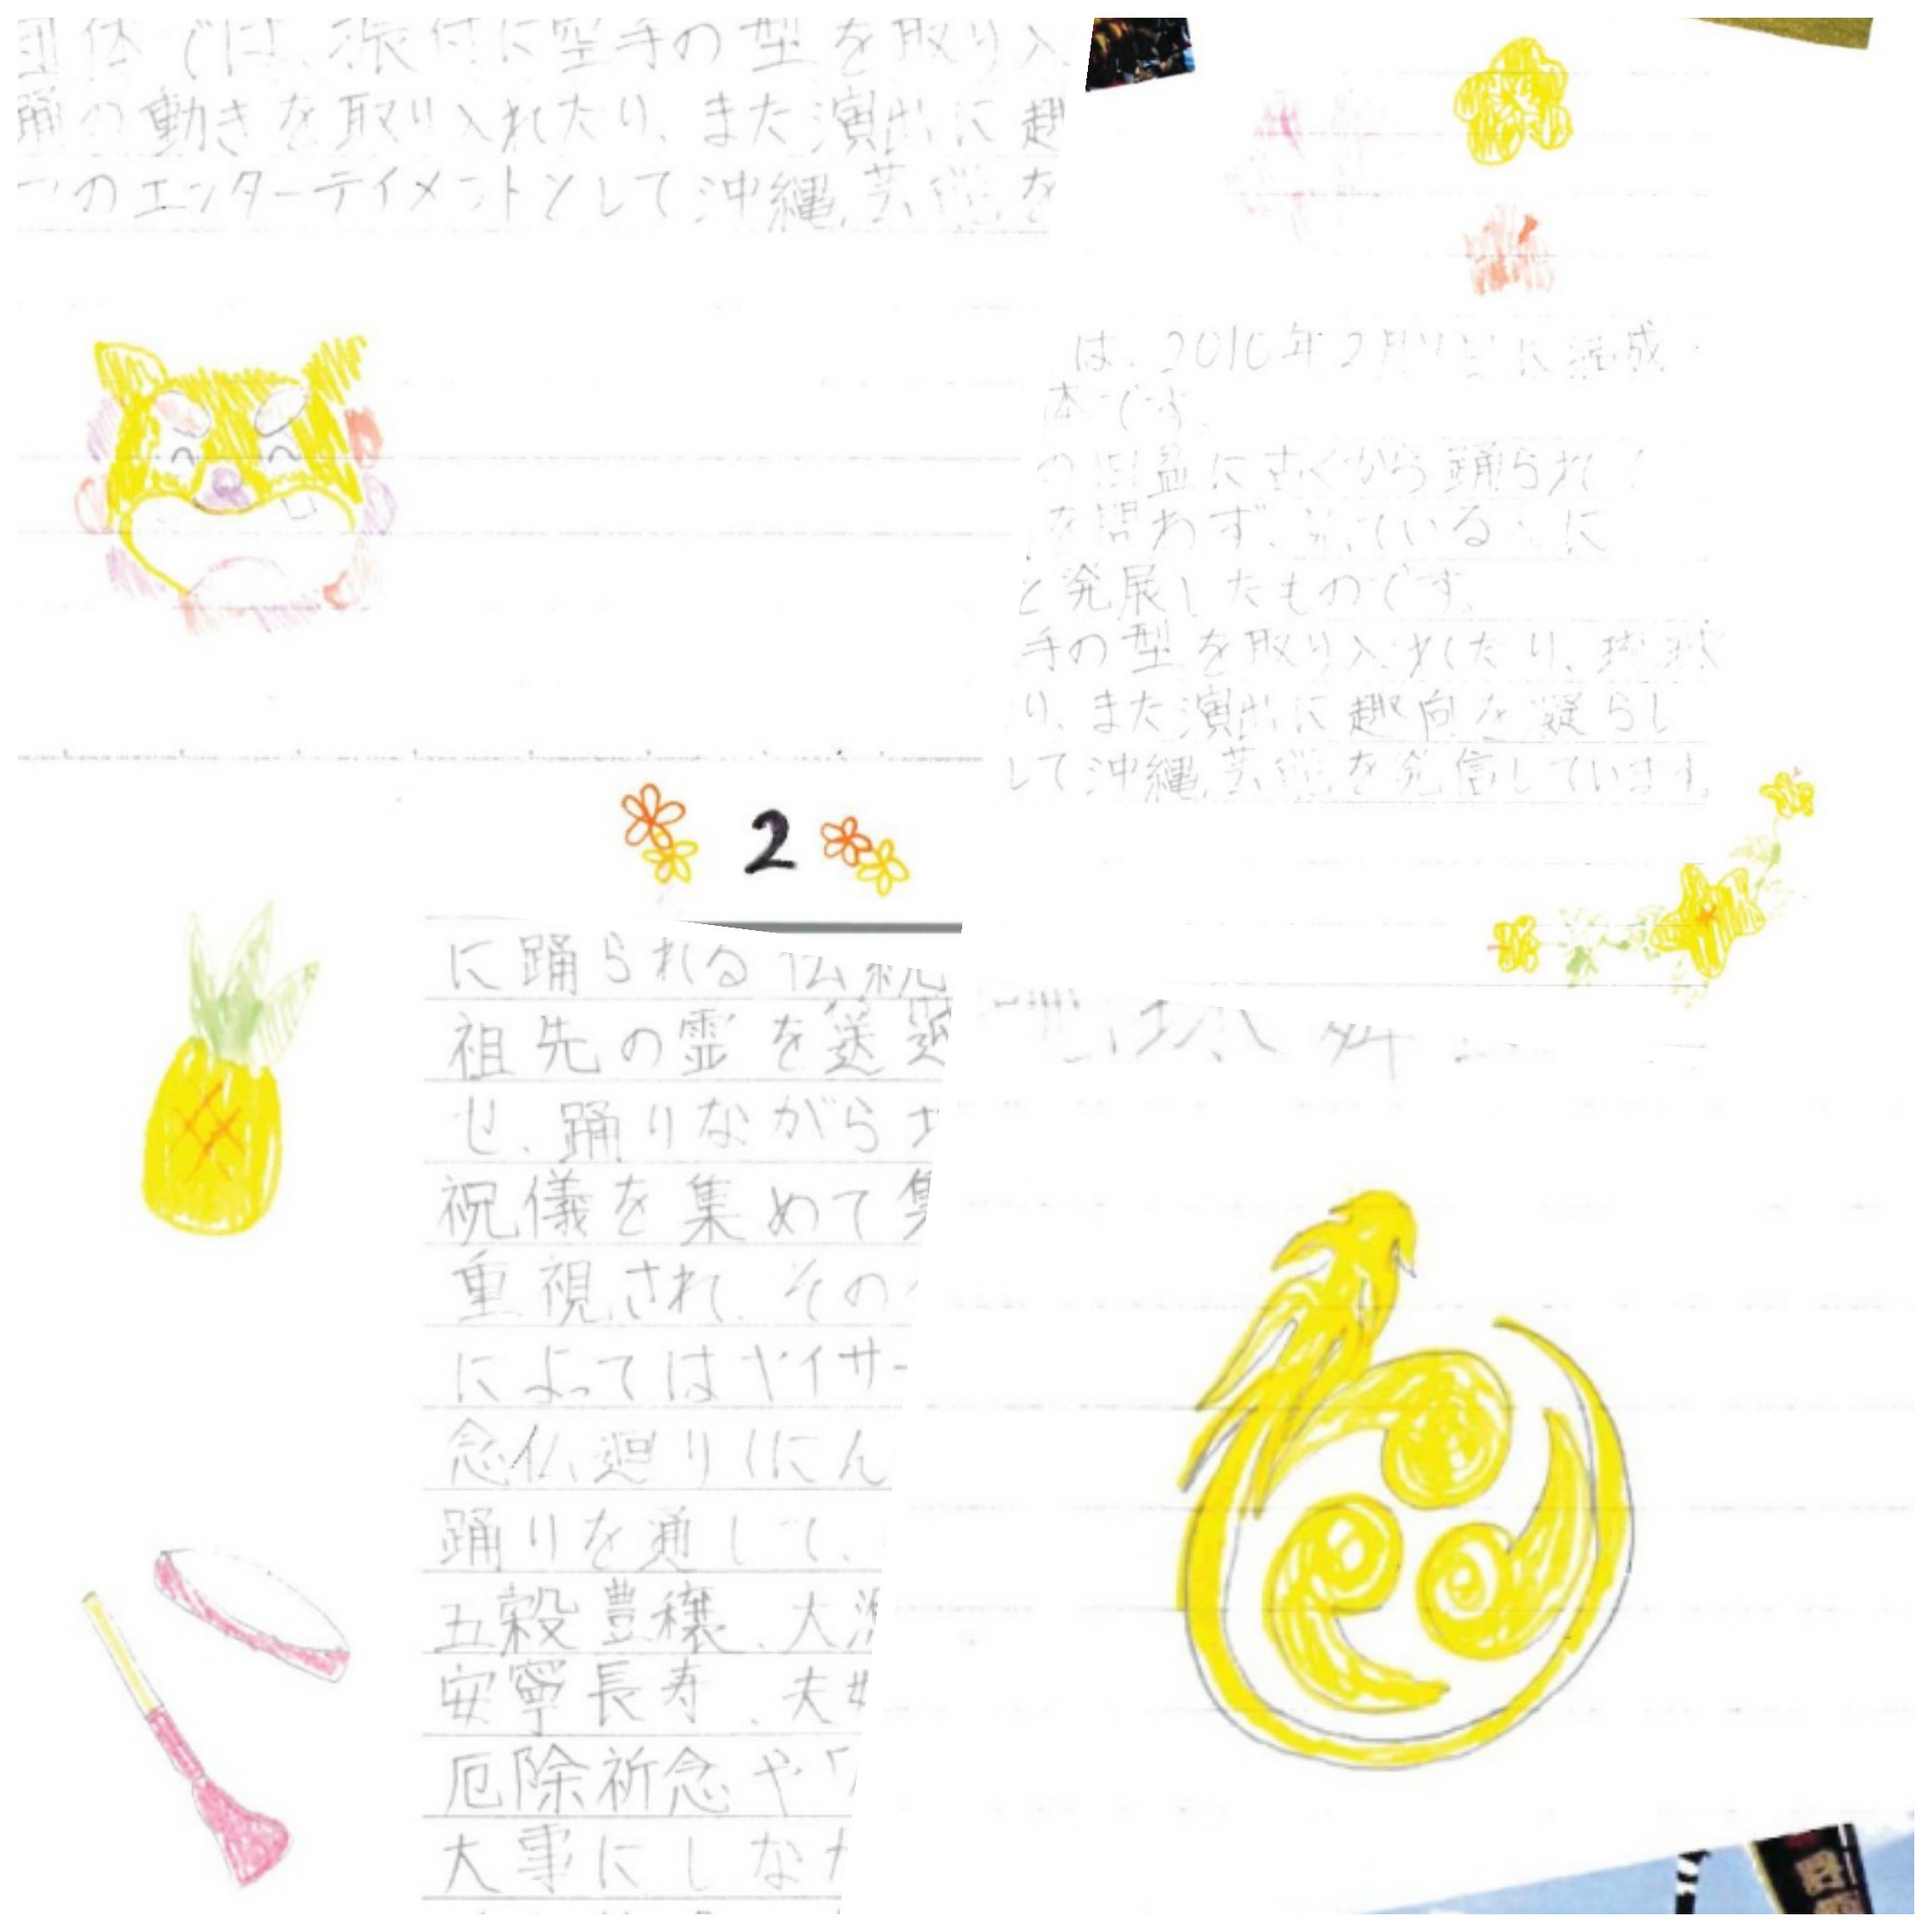 団体では、振付に空手の型を取り入
踊の動きを取り入れたり、また演出に趣
つのエンターテイメントとして沖縄芸能を
2
は、2010年2月
体です。
の旧盆に古くから踊られ
を問わず、見ている人に
と発展したものです。
手の型を取り入れたり、琉球
り、また演出に趣向を凝らし
して沖縄芸能を発信しています。
に踊られる伝統
祖先の霊を送迎
せ、踊りながら
祝儀を集めて集
重視され、その
によってはヤイサー
念仏廻り(にん
踊りを通して、
五穀豊穣、大漁
安寧長寿、夫婦
厄除祈念や
大事にしなが
琉球舞